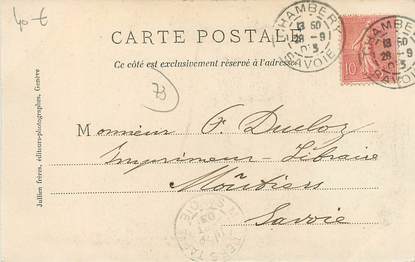 40-€
CARTE POSTALE
Ce côté est exclusivement réservé à l'adresse
CHAMBERY
13 50
28 - 9
03
SAVOIE
CHAMBERY
13 50
28 - 9
03
SAVOIE
10
73
Jullien frères, éditeurs-photographes, Genève
Monsieur F. Ducloz
Imprimeur - Libraire
Moûtiers
Savoie
03
SAVOIE